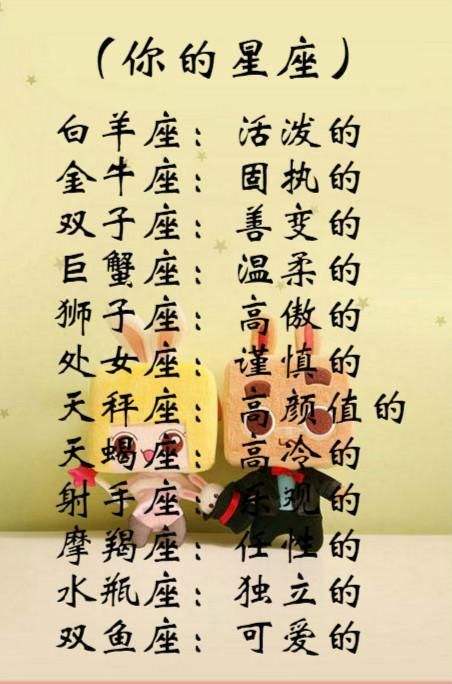 （你的星座）
白羊座：活泼的
金牛座：固执的
双子座：善变的
巨蟹座：温柔的
狮子座：高傲的
处女座：谨慎的
天秤座：高颜值的
天蝎座：高冷的
射手座：乐观的
摩羯座：任性的
水瓶座：独立的
双鱼座：可爱的